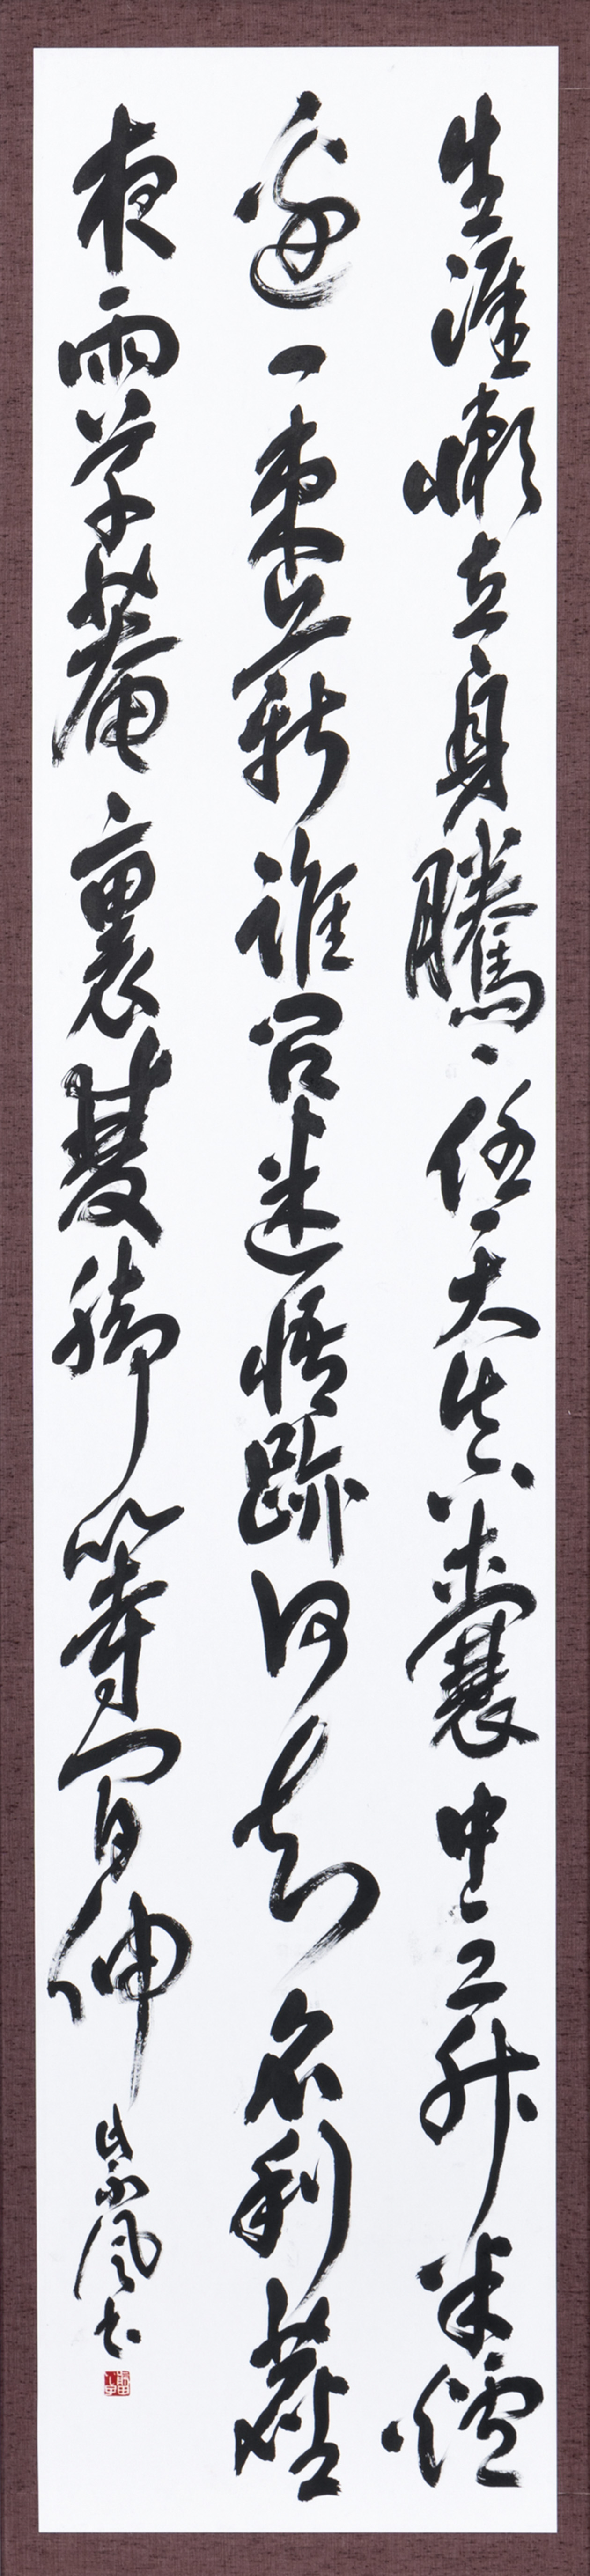 生涯懶立身騰々任天真嚢中三升米爐
邊一束薪誰問迷悟跡何知名利塵
夜雨草菴裏雙脚等間伸 紫風書